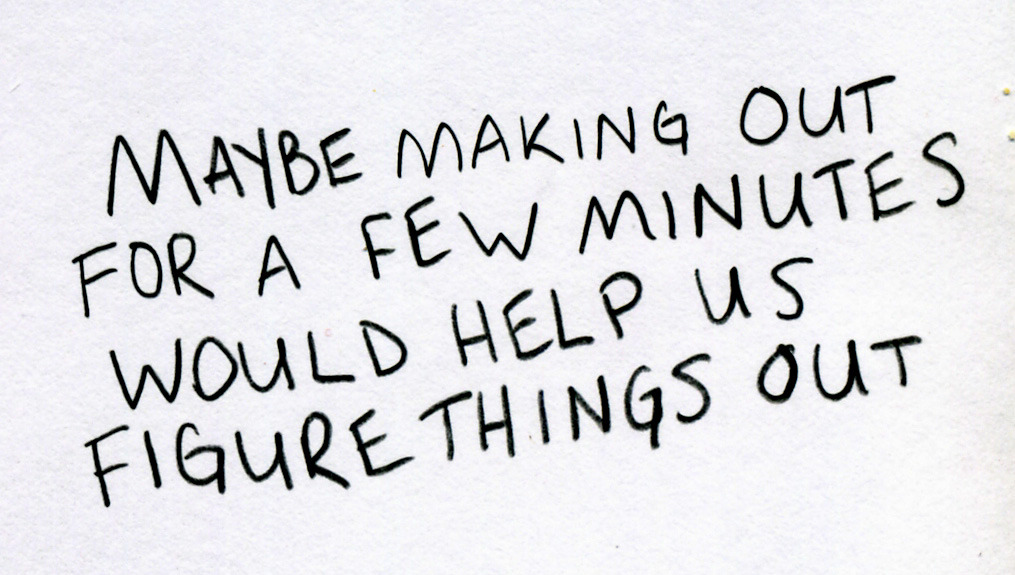 MAYBE MAKING OUT
FOR A FEW MINUTES
WOULD HELP US
FIGURE THINGS OUT